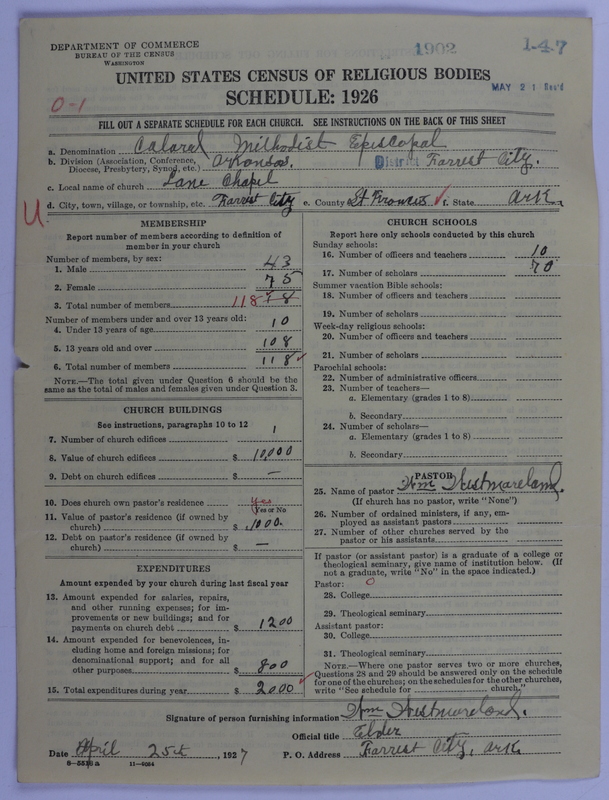 DEPARTMENT OF COMMERCE
BUREAU OF THE CENSUS
WASHINGTON
1902
1-4-7
UNITED STATES CENSUS OF RELIGIOUS BODIES
MAY 21 Rec'd
SCHEDULE: 1926
0-1
FILL OUT A SEPARATE SCHEDULE FOR EACH CHURCH. SEE INSTRUCTIONS ON THE BACK OF THIS SHEET
a. Denomination Calaral Methodist Episcopal
b. Division (Association, Conference, Diocese, Presbytery, Synod, etc.) Arkansas. District Farrest City.
c. Local name of church Lane Chapel
d. City, town, village, or township, etc. Farrest City e. County St Francis f. State Ark.
U
MEMBERSHIP
Report number of members according to definition of
member in your church
Number of members, by sex:
1. Male 43
2. Female 75
3. Total number of members 118
Number of members under and over 13 years old:
4. Under 13 years of age 10
5. 13 years old and over 108
6. Total number of members 118
NOTE.—The total given under Question 6 should be the
same as the total of males and females given under Question 3.
CHURCH BUILDINGS
See instructions, paragraphs 10 to 12
7. Number of church edifices 1
8. Value of church edifices $ 10000
9. Debt on church edifices $ —
10. Does church own pastor's residence yes
Yes or No
11. Value of pastor's residence (if owned by
church) $ 1000.
12. Debt on pastor's residence (if owned by
church) $ —
EXPENDITURES
Amount expended by your church during last fiscal year
13. Amount expended for salaries, repairs,
and other running expenses; for im-
provements or new buildings; and for
payments on church debt $ 1200
14. Amount expended for benevolences, in-
cluding home and foreign missions; for
denominational support; and for all
other purposes $ 800
15. Total expenditures during year $ 2000
CHURCH SCHOOLS
Report here only schools conducted by this church
Sunday schools:
16. Number of officers and teachers 10
17. Number of scholars 70
Summer vacation Bible schools:
18. Number of officers and teachers
19. Number of scholars
Week-day religious schools:
20. Number of officers and teachers
21. Number of scholars
Parochial schools:
22. Number of administrative officers
23. Number of teachers—
a. Elementary (grades 1 to 8)
b. Secondary
24. Number of scholars—
a. Elementary (grades 1 to 8)
b. Secondary
PASTOR
25. Name of pastor Wm Westmareland.
(If church has no pastor, write "None")
26. Number of ordained ministers, if any, em-
ployed as assistant pastors
27. Number of other churches served by the
pastor or his assistants
If pastor (or assistant pastor) is a graduate of a college or
theological seminary, give name of institution below. (If
not a graduate, write "No" in the space indicated.)
Pastor: 0
28. College
29. Theological seminary
Assistant pastor:
30. College
31. Theological seminary
NOTE.—Where one pastor serves two or more churches,
Questions 28 and 29 should be answered only on the schedule
for one of the churches; on the schedules for the other churches,
write "See schedule for church."
Signature of person furnishing information Wm Westmareland.
Official title Elder
Date April 25th, 1927 P. O. Address Farrest City, Ark.
8-5518a 11-9024